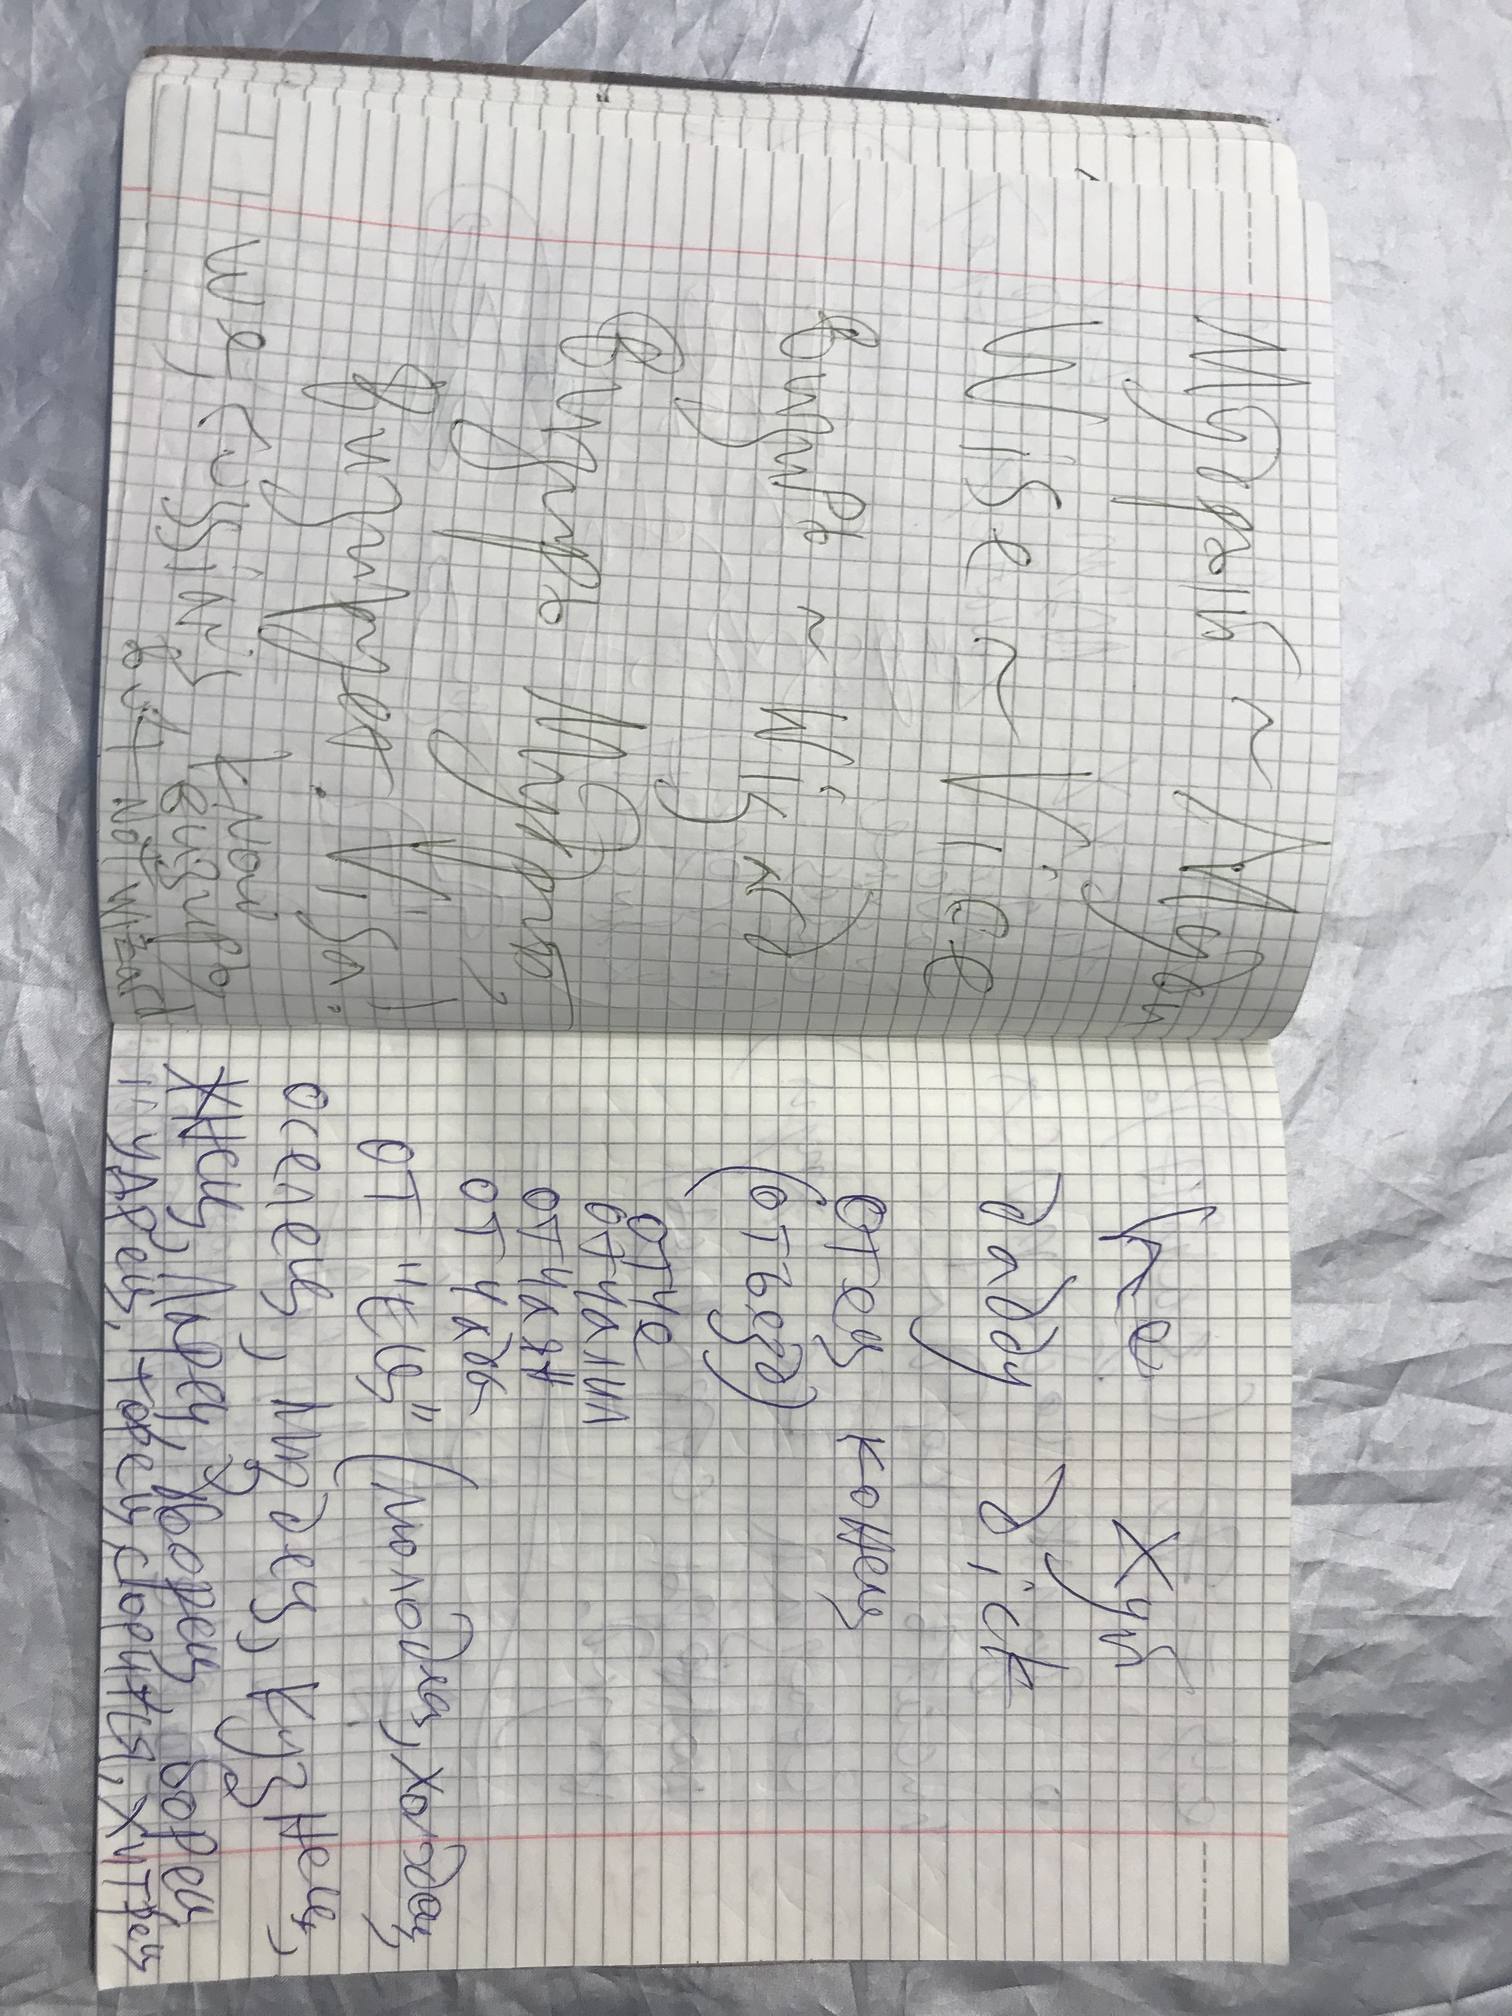 Мудрый ~ Муди
Wise ~ Vice
Визирь ~ Wizard
Визирь Мудрый?
Визирует. Visa!
We, russians know визирь
but not wizard
he хуй
daddy dick
отец конец
(отъезд)
отче
отчалил
отчаян
отчаявь
от "ец" (молодец, холодец,
оселец, пиздец, кузнец,
жнец, ларец, дворец борец
и ударец, торец, спорится, хитрец